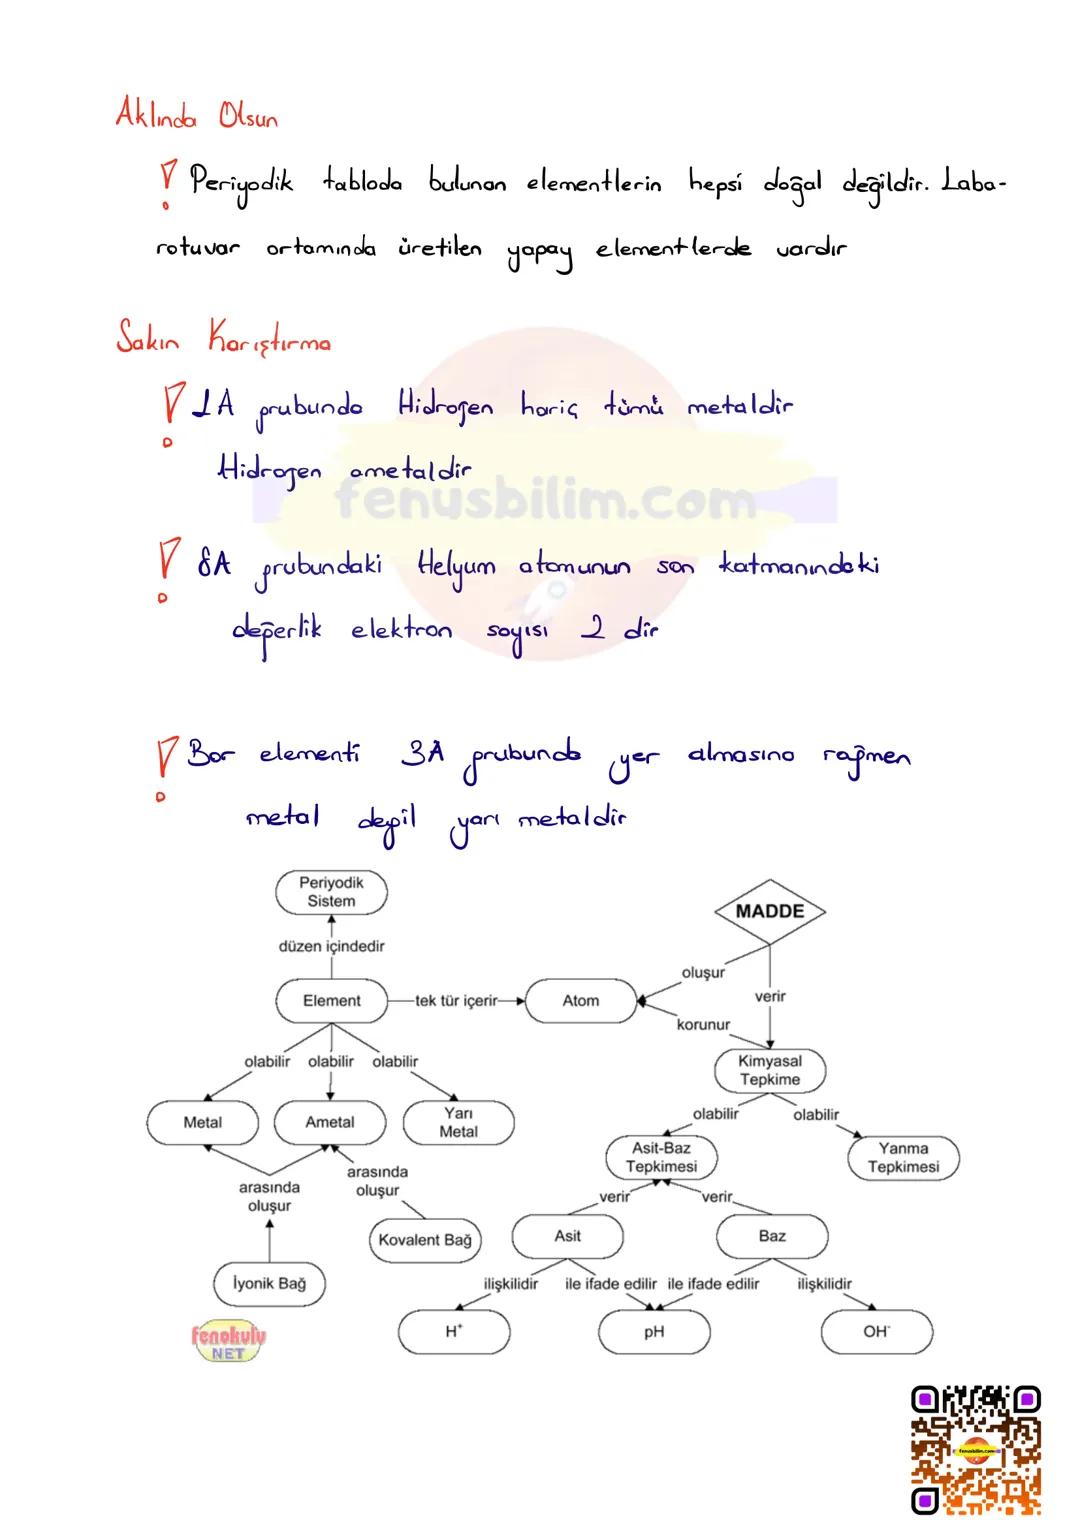 Aklında Olsun
Periyodik tabloda bulunan elementlerin hepsi doğal değildir. Laba-
rotuvar ortamında üretilen yapay elementlerde vardır
Sakın Karıştırma
1A grubunda Hidrojen hariç tümü metaldir
Hidrojen ametaldir
fenusbilim.com
8A grubundaki Helyum atomunun son katmanındaki
değerlik elektron sayısı 2 dir
Bor elementi 3A grubunda yer almasına rağmen
metal değil yarı metaldir
Periyodik
Sistem
MADDE
düzen içindedir
oluşur
verir
Element
tek tür içerir
Atom
korunur
olabilir olabilir olabilir
Kimyasal
Tepkime
Metal
Ametal
Yarı
Metal
olabilir
olabilir
Asit-Baz
Tepkimesi
Yanma
Tepkimesi
arasında
oluşur
arasında
oluşur
verir
verir
Kovalent Bağ
Asit
Baz
İyonik Bağ
ilişkilidir
ile ifade edilir
ile ifade edilir
ilişkilidir
H⁺
pH
OH⁻
fenokulu
NET
fenusbilim.com